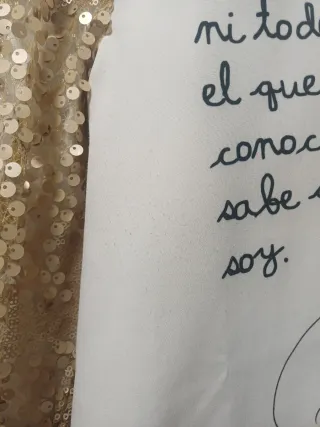 ni tod
el que
conoc
sabe
soy.